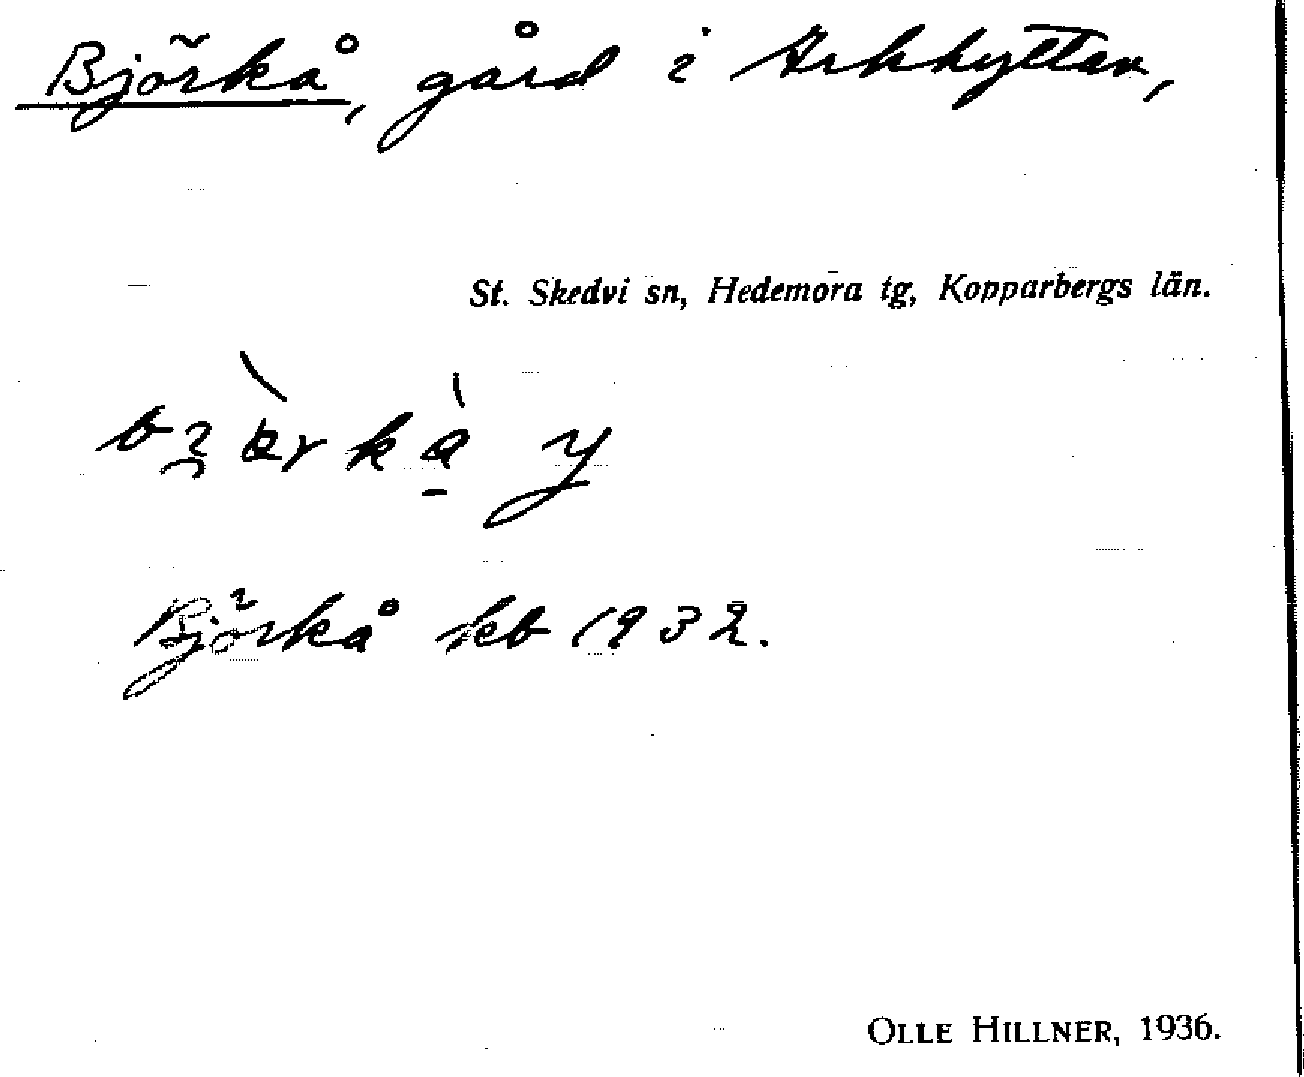 Björkå, gård i Arkhyttan,
St. Skedvi sn, Hedemora tg, Kopparbergs län.
Björkå kb 1932.
OLLE HILLNER, 1936.